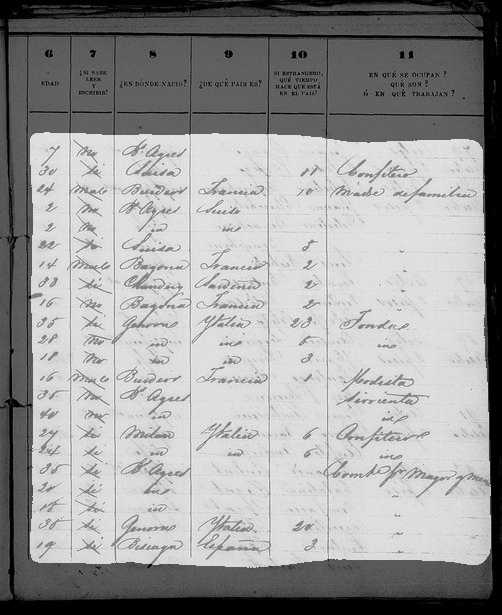 6 7 8 9 10 11
EDAD ¿SI SABE LEER Y ESCRIBIR? ¿EN DÓNDE NACIÓ? ¿DE QUÉ PAIS ES? SI ESTRANGERO, QUÉ TIEMPO HACE QUE ESTÁ EN EL PAIS? EN QUÉ SE OCUPAN? QUÉ SON? Ó EN QUÉ TRABAJAN?
7 no Bs Ayres
30 si Suisa 11 Confitero
24 Burdeos Francia 10 Madre de familia
2 no Bs Ayres Suiso
2 no in in
22 Suisa 8 "
14 Bayona Francia 2 "
33 si 2 "
16 no Bayona Francia 2 "
35 si Genova Ytalia 23
28 no in in 5 in
18 no in in 3
16 Burdeos Francia 1 Modista
35 no Bs Ayres Sirvienta
40 no in in
27 si Milan Ytalia 6 Confitero
24 si in in 5 in
35 si Bs Ayres Comte por Mayor y
20 si in "
18 si in "
35 si Genova Ytalia 20 "
19 si Biscaya España 3 "